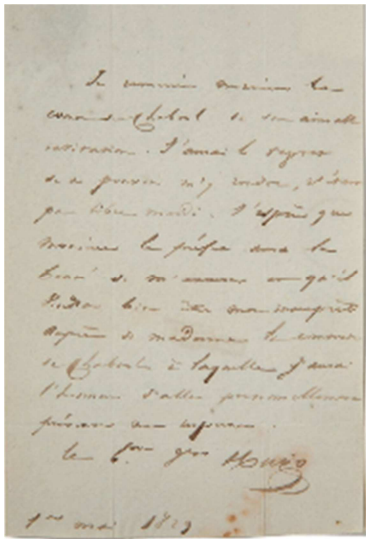 Je remercie monsieur le
comte de Chabrol de son aimable
invitation. J'aurai le regret
de ne pouvoir m'y rendre, n'étant
pas libre mardi. J'espère que
monsieur le préfet aura la
bonté de m'excuser et qu'il
voudra bien être mon interprète
auprès de madame la comtesse
de Chabrol à laquelle j'aurai
l'honneur d'aller personnellement
présenter mes
le
1er mai 1829